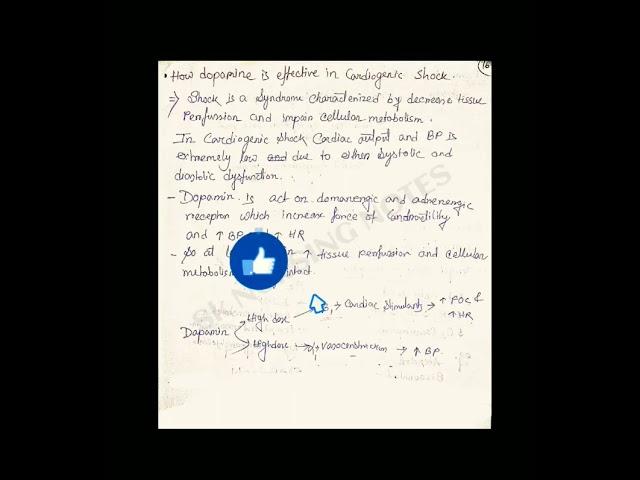 16
• How dopamine is effective in Cardiogenic Shock.
⇒ Shock is a Syndrome characterized by decrease tissue
Perfussion and impain cellular metabolism.
In Cardiogenic Shock Cardiac output and BP is
extremely low and due to either Systolic and
diastolic dysfunction.
- Dopamin is act on domanengic and adrenengic
receptor which increase force of
and ↑ BP ↑ HR
- So at ↑ tissue perfussion and cellular
metabolism intact.
→ Cardiac Stimulants → ↑ FOC &
↑ HR
High dose
Dopamin
Highdose → α1 → Vasoconstruction → ↑ BP.
SK NURSING NOTES